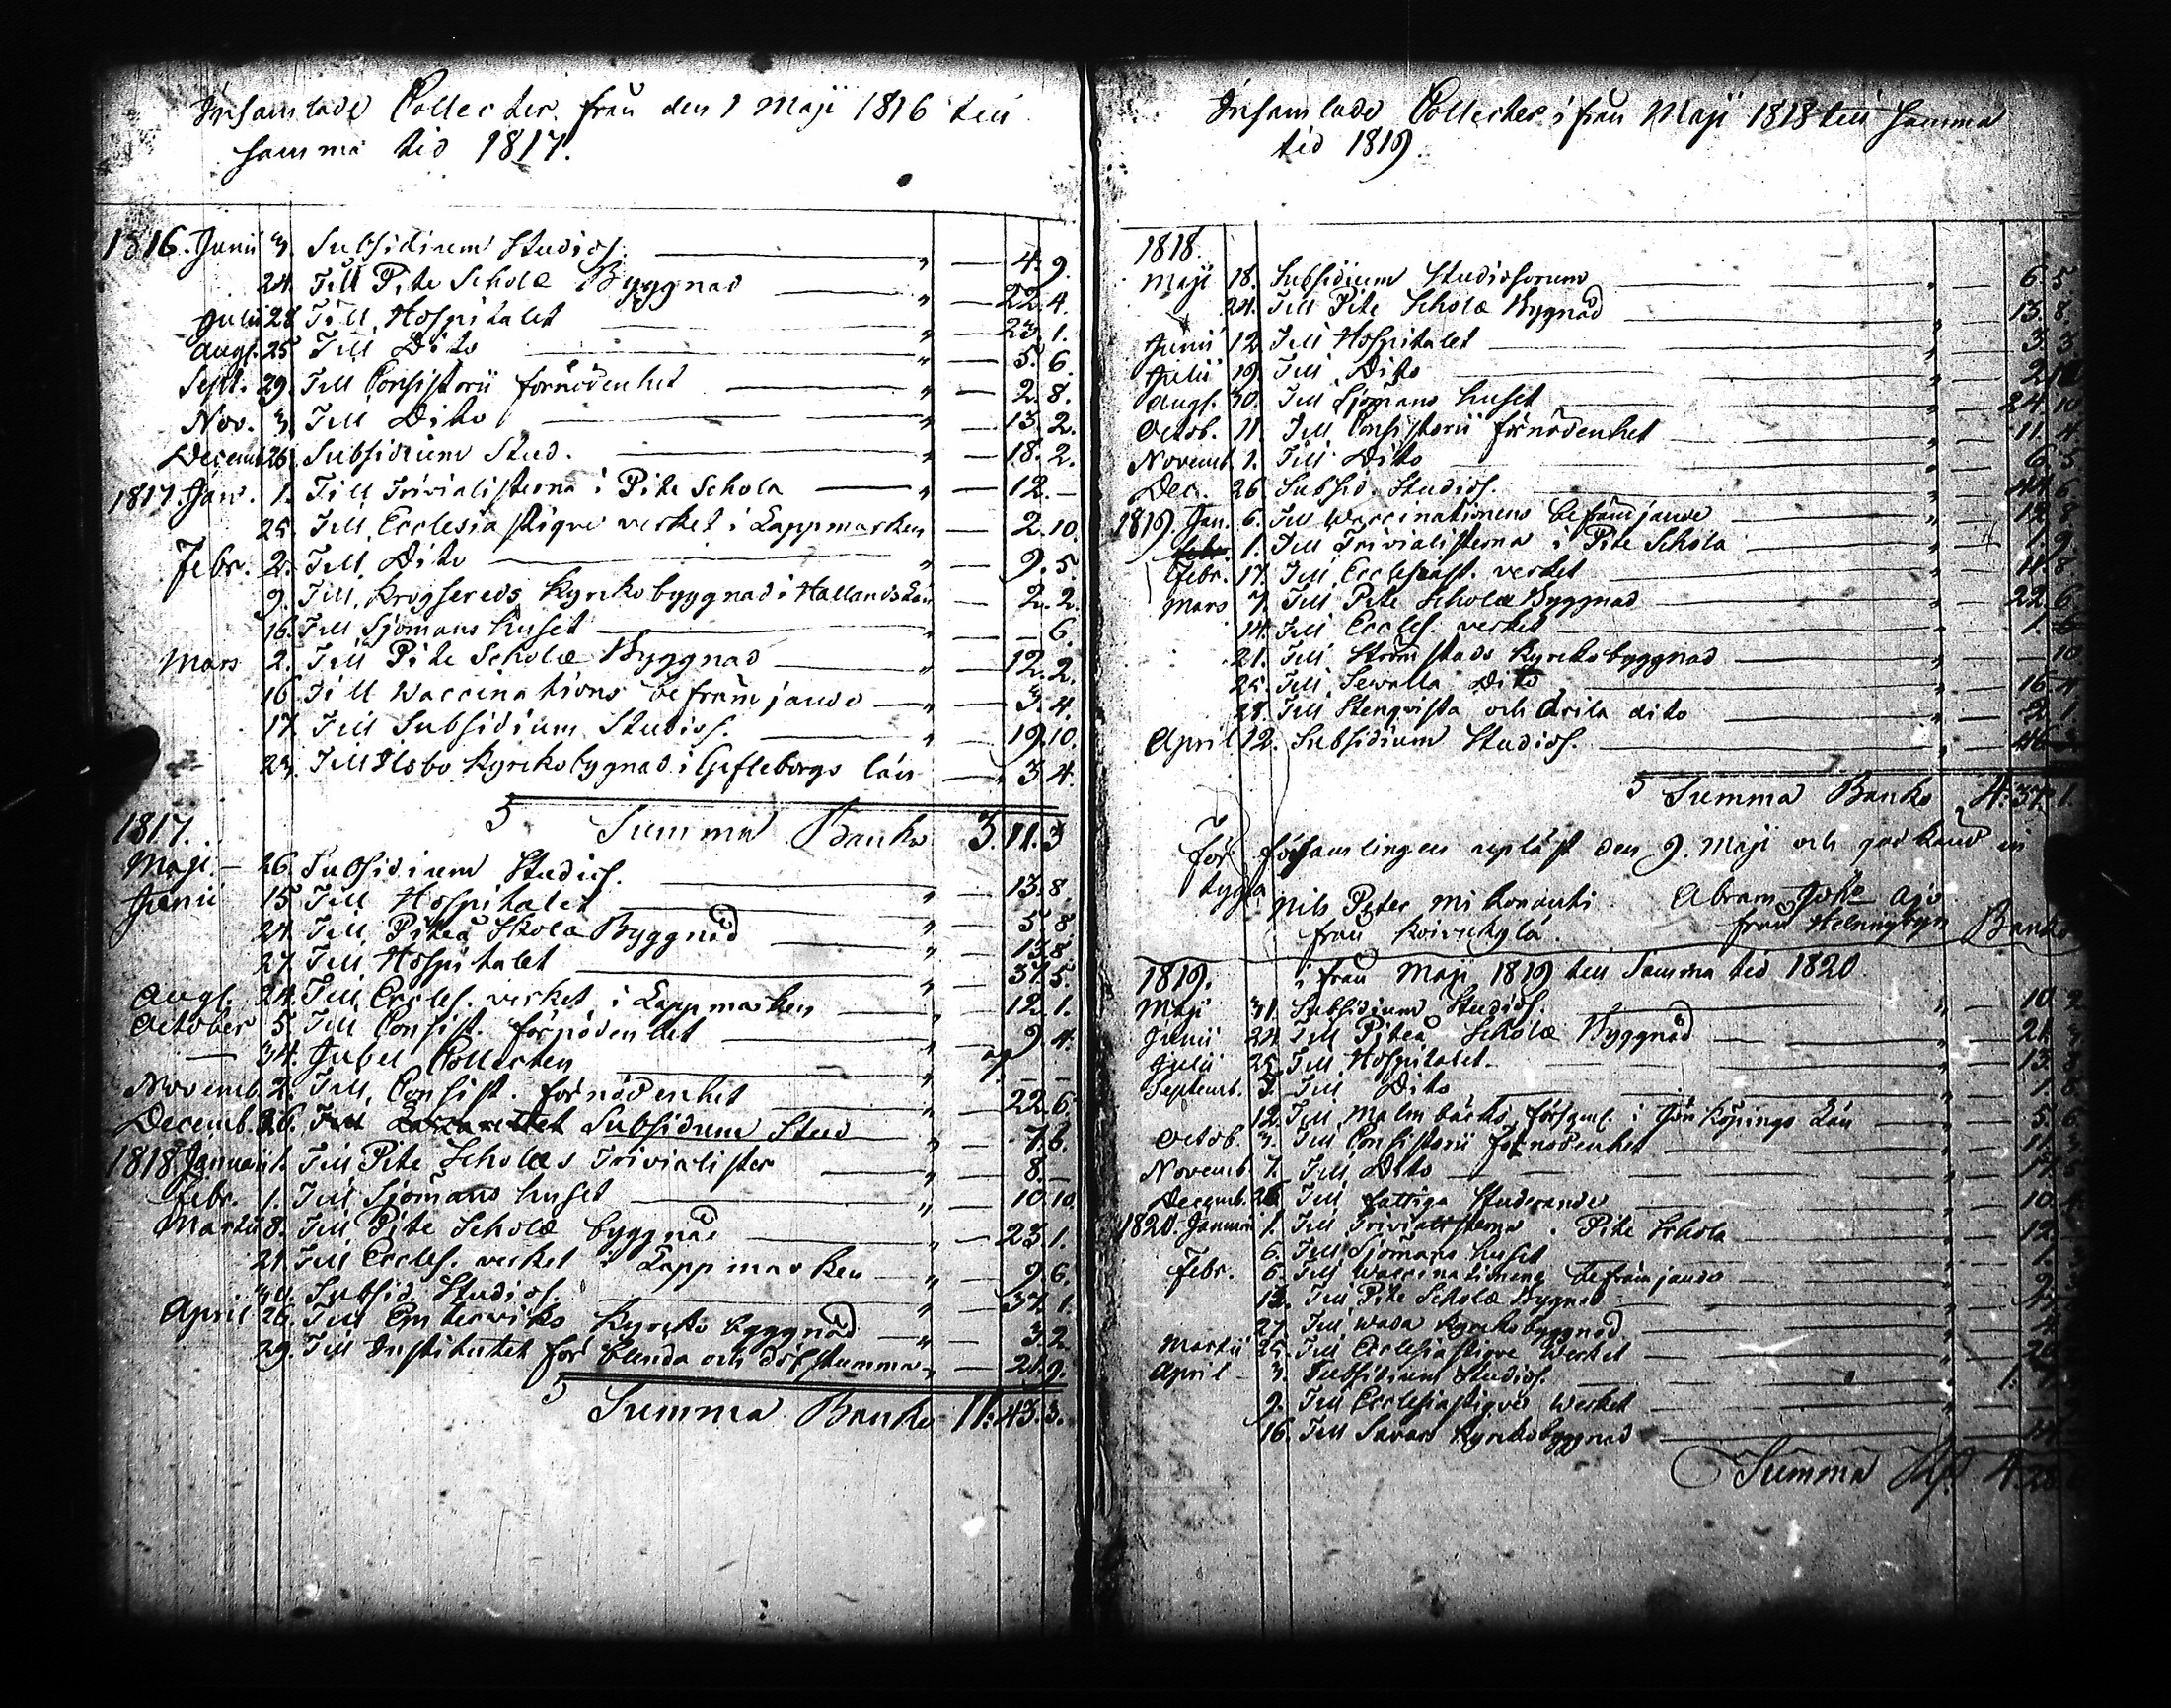 Insamlade Collecter från den 1 Maji 1816 till
samma tid 1817.
1816. Junii 3. Subsidium Studios. " 4. 9.
24. Till Pite Scholæ Byggnad " 22. 4.
Julii 28 Till Hospitalet " 23. 1.
Augs. 25 Till Dito " 5. 6.
Sept. 29. Till Consistorii förnödenhet " 2. 8.
Nov. 3. Till Dito " 13. 2.
Decemb. 26. Subsidium Stud. " 18. 2.
1817. Jan. 1. Till Trivialisterna i Pite Schola " 12. –
25. Till Ecclesiastique verket i Lappmarken 2. 10.
Febr. 2. Till Dito " 9. 5.
9. Till Krogsereds Kyrkobyggnad i Hallands Län 2. 2.
16. Till Sjömans huset " – 6.
Mars 2. Till Pite Scholæ Byggnad " 12. 2.
16 Till Waccinations befrämjande " 3. 4.
17. Till Subsidium Studios. " 19. 10.
23. Till Ilsbo Kyrkobygnad i Gefleborgs län " 3 4.
Summa Banko 3. 11. 3
1817.
Maji – 26. Subsidium Studios. " 13. 8.
Junii 15 Till Hospitalet " 5. 8
24. Till Piteå Skola Byggnad " 13. 8
27. Till Hospitalet " 37. 5.
Augs. 24. Till Eccles. verket i Lappmarken " 12. 1.
October 5. Till Consist. förnödenhet " 9. 4.
— 31. Jubel Collecten " 7. – –
Novemb. 2. Till Consist. förnödenhet " 22. 6.
Decemb. 26. Till Lazarettet Subsidium Stud " 7. 6.
1818 Januarii 1. Till Pite Scholæs Trivialister 8. –
Febr. 1. Till Sjömans huset " 10. 10
Martii 8. Till Pite Scholæ byggnad " 23. 1.
21. Till Eccles. verket i Lappmarken " 9. 6.
30. Subsid. Studios. " 37. 1.
April 26. Till Kyrko byggnad " 3. 2.
29. Till Institutet för blinda och döfstumma " 21. 9.
Summa Banko 11. 43. 3.
Insamlade Collecter ifrån Maji 1818 till samma
tid 1819.
1818.
Maji 18. Subsidium Studiosorum " 6. 5
24. Till Pite Scholæ Bygnad " 13. 8.
Junii 12. Till Hospitalet " 3. 3
Julii 19. Till Dito "
Augs. 30. Till Sjömans huset " 24. 10
Octob. 11. Till Consistorii förnödenhet " 11. 4.
Novemb. 1. Till Dito " 6. 5
Dec. 26. Subsid. Studios. "
1819. Jan. 6. Till Waccinationens befrämjande " 12. 8
1. Till Trivialisterna i Pite Schola "
Febr. 17. Till Ecclesiast. verket " 11. 8
Mars 7. Till Pite Scholæ Byggnad " 22. 6.
14. Till Eccles. verket " 1.
21. Till Strömstads Kyrkobyggnad " – 10
25. Till Sewalla Dito " 16. 4
28. Till Stenqvista och Ärila dito " 2. 1.
April 12. Subsidium Studios. "
Summa Banko 4. 37. 1.
För församlingen upläst den 9. Maji och godkänd in
tyga
Nils Peter Mikonanti Abram
från Koivukylä. från
1819. ifrån Maji 1819 till samma tid 1820
Maji 31. Subsidium Studios. " 10. 2
Junii 24. Till Piteå Scholæ Byggnad "
Julii 25. Till Hospitalet " 13. 8
Septemb. 5. Till Dito " 1. 8
12. Till Malmbäcks församl. i Jönköpings Län " 5. 6.
Octob. 3. Till Consistorii förnödenhet " 11. 3
Novemb. 7. Till Dito "
Decemb. 26 Till fattiga Studerande " 10. 4
1820. Januari 1. Till Trivialisterna i Pite Schola " 12.
6. Till Sjömans huset " 1.
Febr. 6. Till Waccinationens befrämjande "
13. Till Pite Scholæ Bygnad "
27. Till Wasa Kyrkobyggnad "
Martii 25. Till Ecclesiastique Werket "
April 3. Subsidium Studios. "
9. Till Ecclesiastique Werket "
16. Till Kyrkobyggnad
Summa